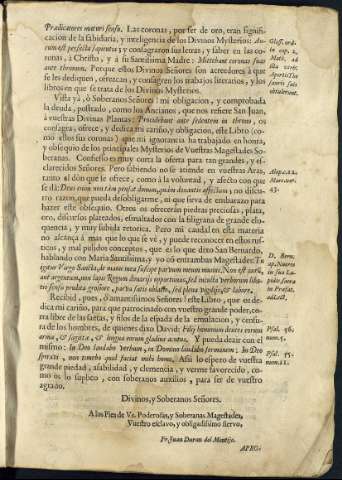 Prædicatores maturi sensu. Las coronas, por ser de oro, eran signifi-
cacion de la sabiduria, y inteligencia de los Divinos Mysterios: Au-
rum est perfecta sapientia; y consagraron sus letras, y saber en las co-
ronas, à Christo, y à su Santissima Madre: Mittebant coronas suas
ante thronum. Porque estos Divinos Señores son acreedores à que
se les dediquen, ofrezcan, y consagren los trabajos literarios, y los
libros en que se trata de los Divinos Mysterios.
Vista yà, ò Soberanos Señores! mi obligacion, y comprobada
la deuda, postrado, como los Ancianos, que nos refiere San Juan,
à vuestras Divinas Plantas: Procidebant ante sedentem in throno, os
consagra, ofrece, y dedica mi cariño, y obligacion, este Libro (co-
mo ellos sus coronas) que mi ignorancia ha trabajado en honra,
y obsequio de los principales Mysterios de Vuestras Magestades So-
beranas. Confiesso es muy corta la oferta para tan grandes, y es-
clarecidos Señores. Pero sabiendo no se atiende en vuestras Aras,
tanto al dòn que se ofrece, como à la voluntad, y afecto con que
se dà: Deus enim non tàm pensat donum, quàm donantis affectum; no discur-
ro razon, que pueda desobligarme, ni que sirva de embarazo para
hazer este obsequio. Otros os ofreceràn piedras preciosas, plata,
oro, discursos plateados, esmaltados con la filigrana de grande elo-
quencia, y muy subida retorica. Pero mi caudal en esta materia
no alcança à mas que lo que se vè, y puede reconocer en estos rus-
ticos, y mal pulidos conceptos, que es lo que dixo San Bernardo,
hablando con Maria Santissima, y yo con entrambas Magestades: Te
egitur Virgo Sancta, de manu mea suscipe parvum meum munus. Non est aurũ,
aut argentum,
Recibid, pues, ò amantissimos Señores! este Libro, que os de-
dica mi cariño, para que patrocinado con vuestro grande poder, cor-
ra libre de las saetas, y filos de la espada de la emulacion, y censu-
ra de los hombres, de quienes dixo David: Filij hominum dentes eorum
arma, & sagittæ, & lingua eorum gladius acutus. Y pueda dezir con el
mismo: In Deo laudabo Verbum, in Domino laudabo sermonem: In Deo
speravi, non timebo quid faciat mihi homo. Assi lo espero de vuestra
grande piedad, afabilidad, y clemencia, y verme favorecido, co-
mo os lo suplico, con soberanos auxilios, para ser de vuestro
agrado.
Divinos, y Soberanos Señores.
A los Pies de Vs. Poderosas, y Soberanas Magestades,
Vuestro esclavo, y obligadissimo siervo,
Fr. Juan Duran del Montijo.
APRO-
Glos. ord.
in cap. 2.
Math.
Apoc. c. 4.
43.
D. Bern.
Psal. 56.
num. 5.
Psal. 55.
num. 11.